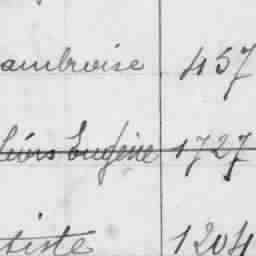 ambroise 457
Eugène 1727
tiste 1204